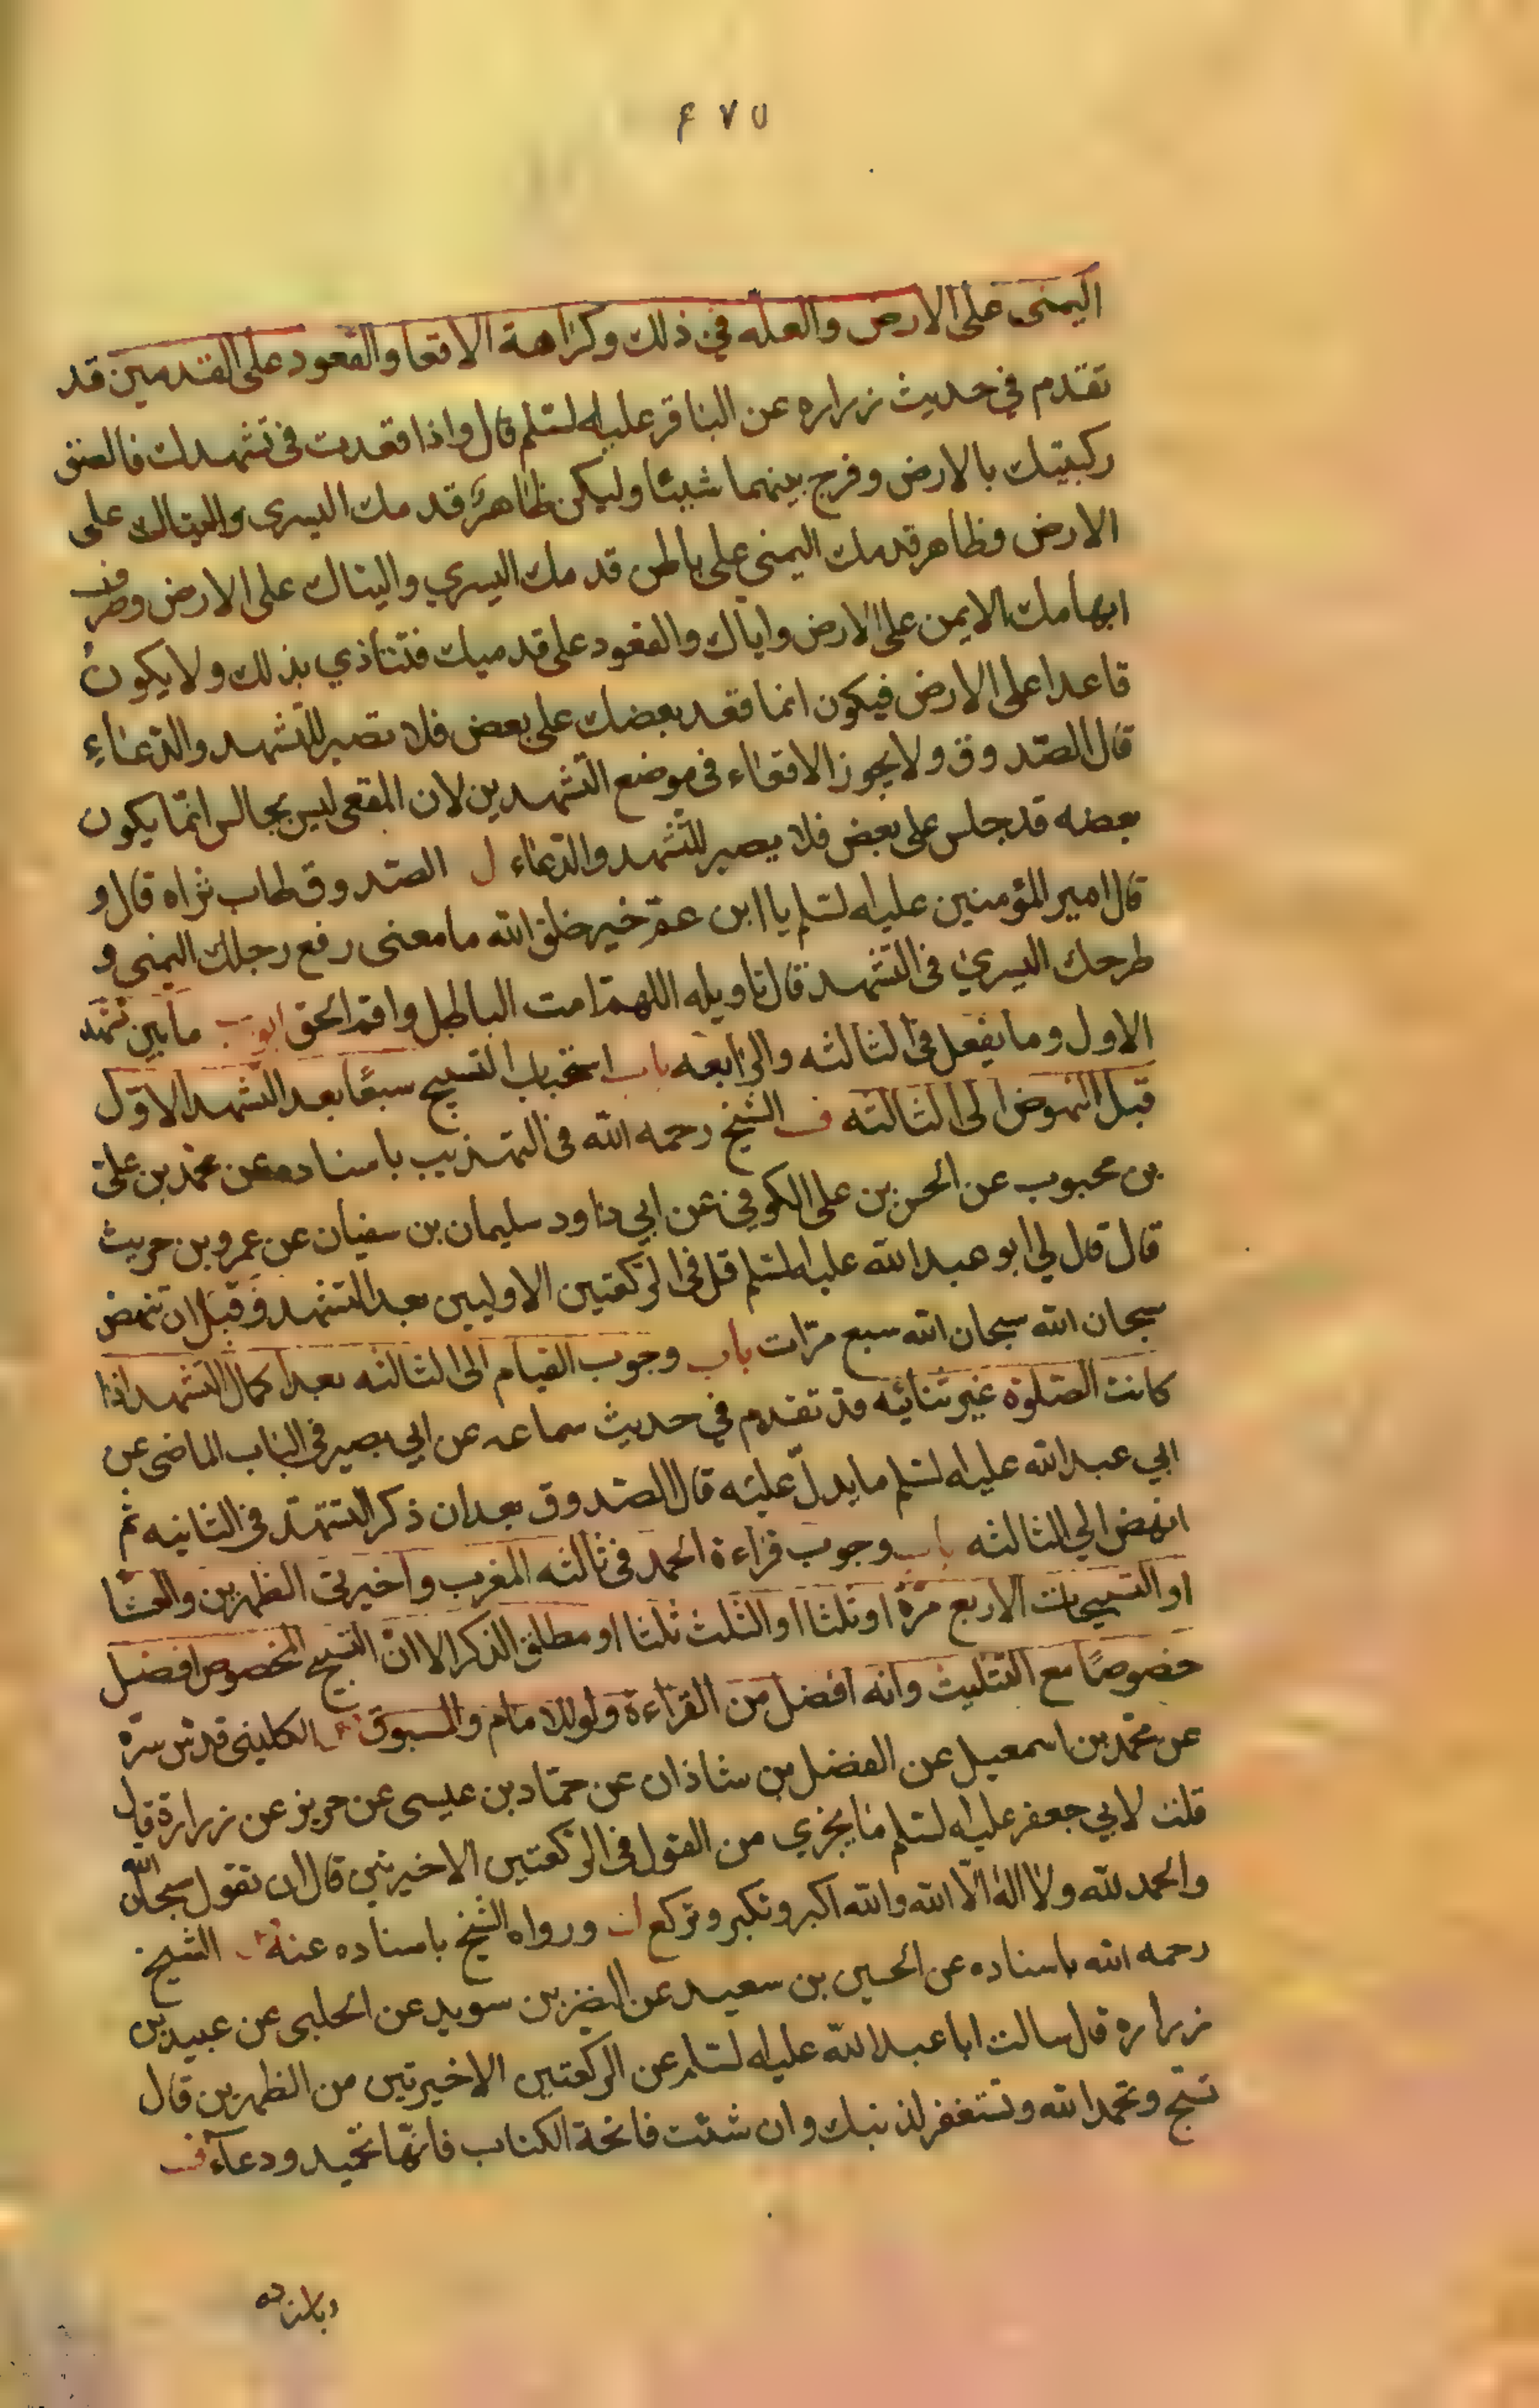 ٤٧٥
اليمنى على الارض والعله في ذلك وكراهة الاقعا والقعود على القدمين قد
تقدم في حديث زراره عن الباقر عليه لسلم قال واذا قعدت فى تشهدك فالصق
ركبتيك بالارض وفرج بينهما شيئا وليكن ظاهر قدمك اليسرى واليتاك على
الارض وظاهر قدمك اليمني على باطن قدمك اليسري واليتاك على الارض وطرف
ابهامك الايمن على الارض واياك والقعود على قدميك فتتأذي بذلك ولا يكون
قاعدا على الارض فيكون انما قعد بعضك على بعض فلا تصبر للتشهد والدعاء
قال الصدوق ولا يجوز الاقعاء فى موضع التشهدين لان المقعى ليس بجالس انما يكون
بعضه قد جلس على بعض فلا يصبر للتشهد والدعاء ل الصدوق طاب ثراه قال و
قال امير المؤمنين عليه لسلم يا ابن عم خير خلق الله ما معنى رفع رجلك اليمني و
طرحك اليسري فى التشهد قال تاويله اللهم امت الباطل واقم الحق ابواب ما بين تشهد
الاول وما يفعل فى الثالثه والرابعه باب استحباب التسبيح سبعا بعد التشهد الاول
قبل النهوض الى الثالثه ف الشيخ رحمه الله فى التهذيب باسناده عن محمد بن على
بن محبوب عن الحسن بن على الكوفي عن ابي داود سليمان بن سفيان عن عمرو بن حريث
قال قال لي ابو عبد الله عليه لسلم قل فى الركعتين الاوليين بعد التشهد وقبل ان تنهض
سبحان الله سبحان الله سبع مرات باب وجوب القيام الى الثالثه بعد اكمال التشهد اذا
كانت الصلوة غير ثنائيه قد تقدم في حديث سماعه عن ابي بصير فى الباب الماضى عن
ابي عبد الله عليه لسلم ما يدل عليه قال الصدوق بعد ان ذكر التشهد فى الثانيه ثم
انهض الي الثالثه باب وجوب قراءة الحمد فى ثالثه المغرب واخيرتى الظهرين والعشا
او التسبيحات الاربع مرة او ثلثا او الثلث ثلثا او مطلق الذكر الا ان التسبيح المخصوص افضل
خصوصا مع التثليث وانه افضل من القراءة ولو للامام والمسبوق الكليني قدس سره
عن محمد بن اسمعيل عن الفضل بن شاذان عن حماد بن عيسى عن حريز عن زرارة قال
قلت لابي جعفر عليه لسلم ما يجزي من القول فى الركعتين الاخيرتين قال ان تقول سبحان الله
والحمد لله ولا اله الا الله والله اكبر وتكبر وتركع ورواه الشيخ باسناده عنه الشيخ
رحمه الله باسناده عن الحسين بن سعيد عن النضر بن سويد عن الحلبى عن عبيد بن
زراره قال سالت ابا عبد الله عليه لسلم عن الركعتين الاخيرتين من الظهرين قال
تسبح وتحمد الله وتستغفر لذنبك وان شئت فاتحة الكتاب فانها تحميد ودعاء ف
وباسناده